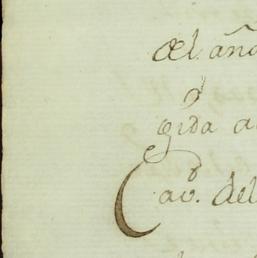 del año
gida a
Cav. del